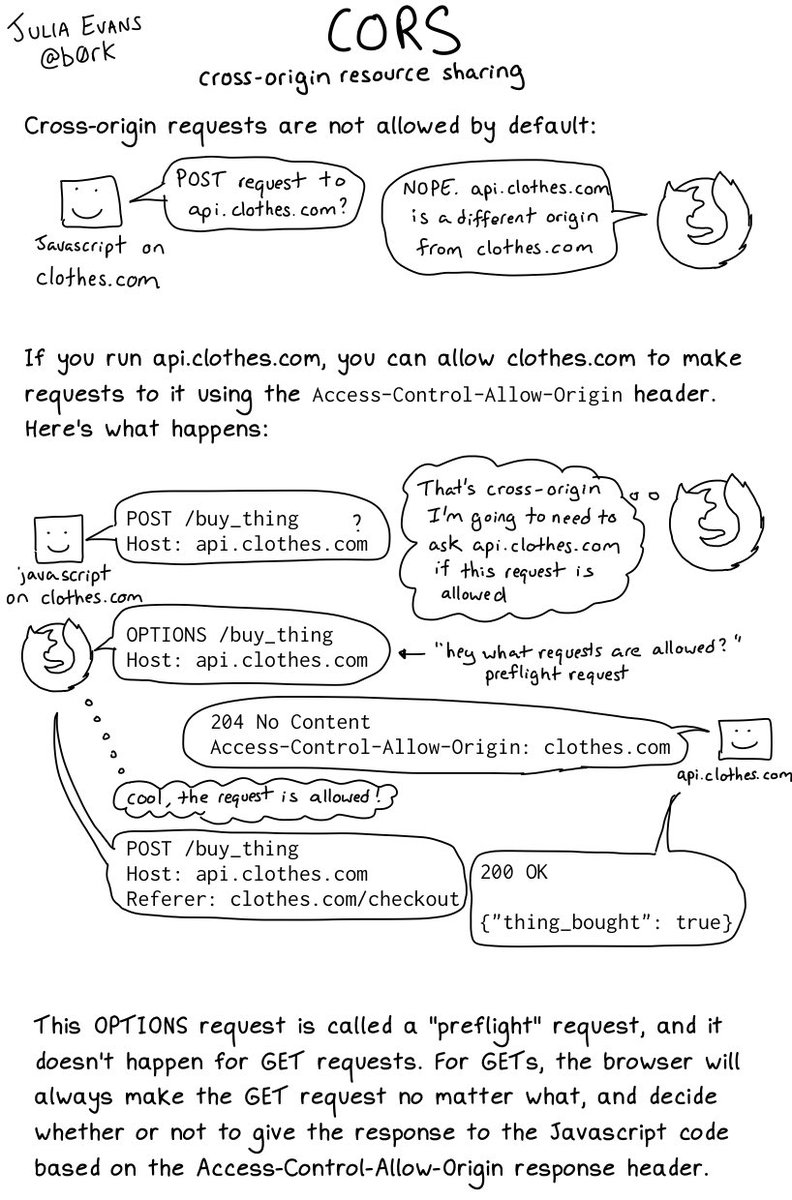 JULIA EVANS
@b0rk
CORS
cross-origin resource sharing
Cross-origin requests are not allowed by default:
POST request to
api.clothes.com?
NOPE. api.clothes.com
is a different origin
from clothes.com
Javascript on
clothes.com
If you run api.clothes.com, you can allow clothes.com to make
requests to it using the Access-Control-Allow-Origin header.
Here's what happens:
POST /buy_thing ?
Host: api.clothes.com
That's cross-origin
I'm going to need to
ask api.clothes.com
if this request is
allowed
javascript
on clothes.com
OPTIONS /buy_thing
Host: api.clothes.com
"hey what requests are allowed?"
preflight request
204 No Content
Access-Control-Allow-Origin: clothes.com
api.clothes.com
cool, the request is allowed!
POST /buy_thing
Host: api.clothes.com
Referer: clothes.com/checkout
200 OK
{"thing_bought": true}
This OPTIONS request is called a "preflight" request, and it
doesn't happen for GET requests. For GETs, the browser will
always make the GET request no matter what, and decide
whether or not to give the response to the Javascript code
based on the Access-Control-Allow-Origin response header.